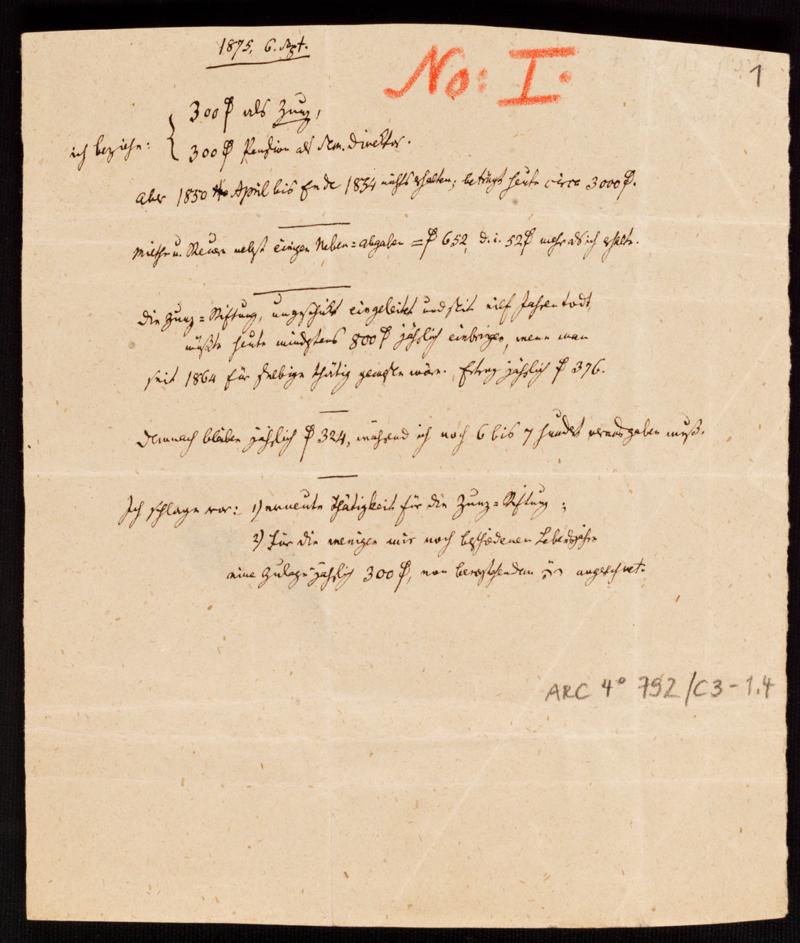 1875, 6. Sept.
No: I.
1
ich beziehe: { 300 ₰ als Zunz,
300 ₰ Pension als Sem. Direktor.
Aber 1850 April bis Ende 1854 nichts erhalten; beträgt heute circa 3000 ₰.
Miethe u. Steuer nebst einigen Neben-Abgaben = ₰ 652, d. i. 52 ₰ mehr als ich erhalte.
Die Zunz-Stiftung, ungeschickt eingeleitet und seit eilf Jahren todt,
müßte heute mindestens 800 ₰ jährlich einbringen, wenn man
seit 1864 für selbige thätig gewesen wäre. Ertrag jährlich ₰ 376.
Demnach bleiben jährlich ₰ 324, während ich noch 6 bis 7 hundert verausgaben muß.
Ich schlage vor: 1) erneute Thätigkeit für die Zunz-Stiftung;
2) für die wenigen mir noch beschiedenen Lebensjahre
eine Zulage jährlich 300 ₰, vom bevorstehenden angerechnet.
ARC 4° 792/C3-1.4